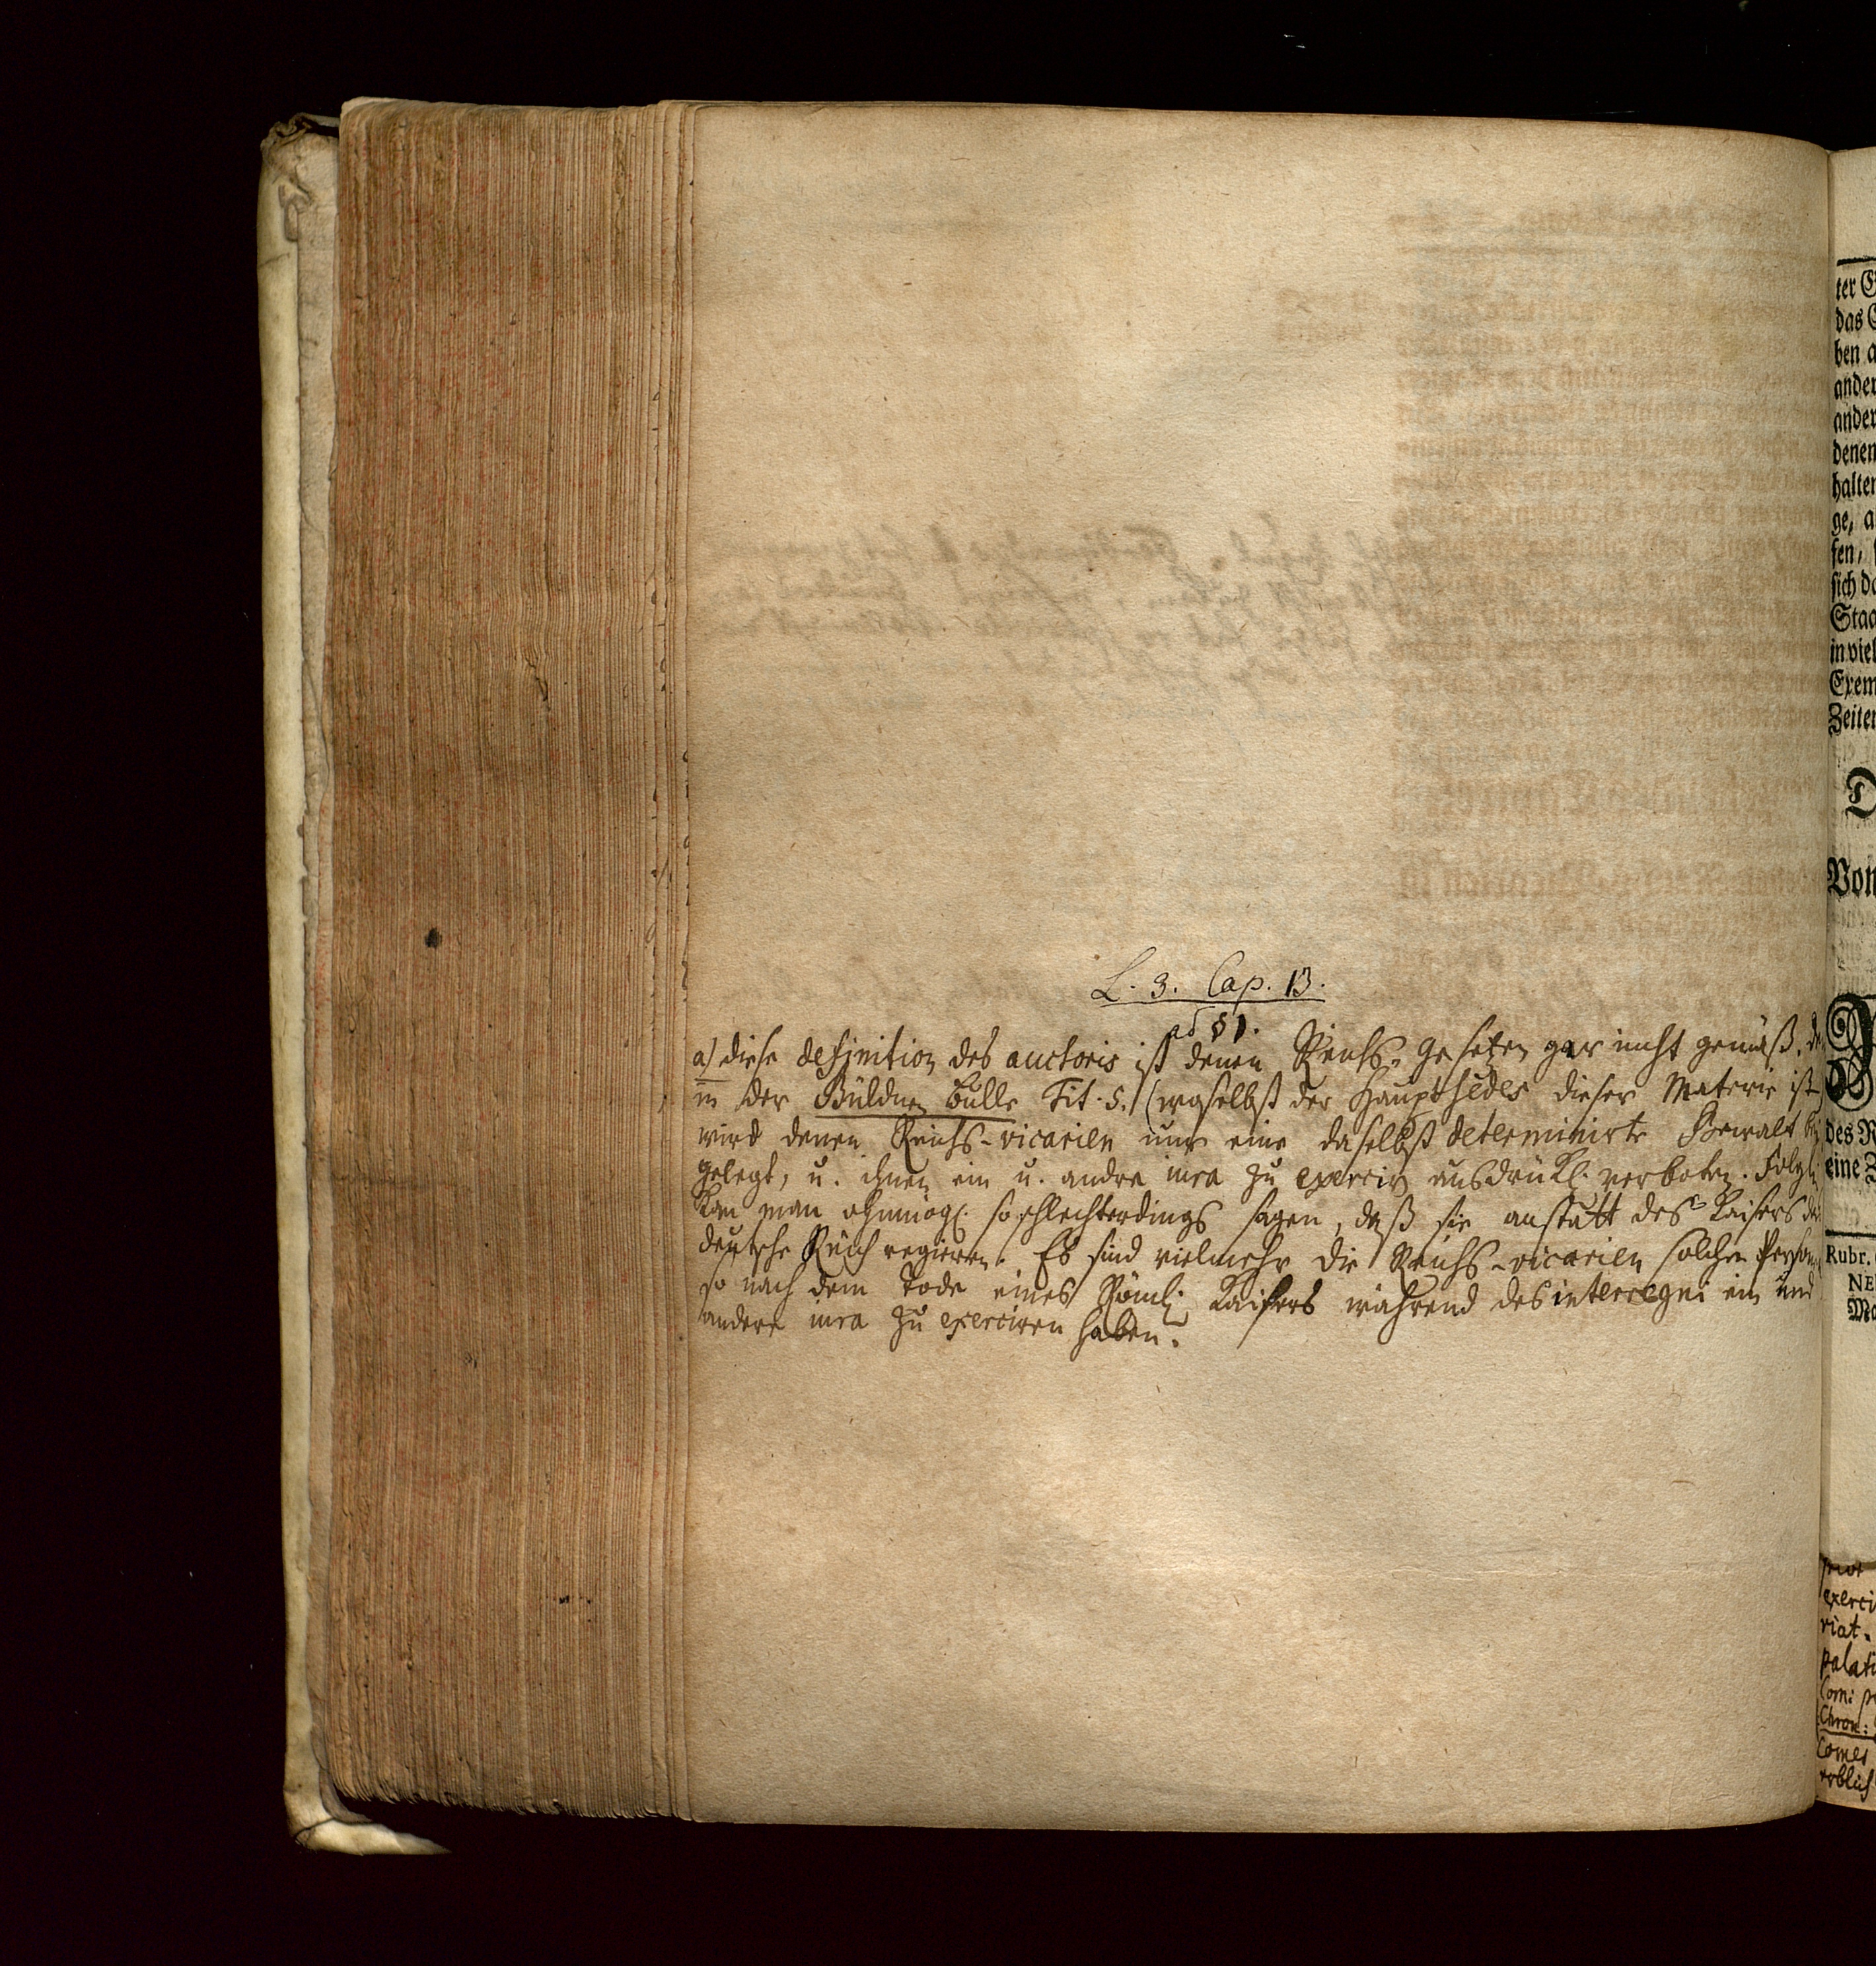 L. 3. Cap. 13.
ad § 1.
a) diese definition des auctoris ist denen Reichs-Gesetzen gar nicht gemäß, den
in der Güldnen Bulle Tit. 5. (woselbst der Haupt sedes dieser Materie ist)
wird denen Reichs-vicarien nur eine daselbst determinirte Gewalt bey
gelegt, u. ihnen ein u. andre iura zu exerciren ausdrükl. verboten. Folgl.
kan man ohnmögl. so schlechterdings sagen, daß sie anstatt des Kaisers das
deutsche Reich regieren. Es sind vielmehr die Reichs-vicarien solche Personen
so nach dem Tode eines Römis. Kaisers während des interregni ein und
andere iura zu exerciren haben.
ter
das
ben
ander
ander
denen
halten
ge, a
sen,
sich
Staa
in viel
Exem
Zeiten
D
Von
des R
eine Z
Rubr.
NE
exerci
riat.
palati
Com:
Chron:
Comes
erblich